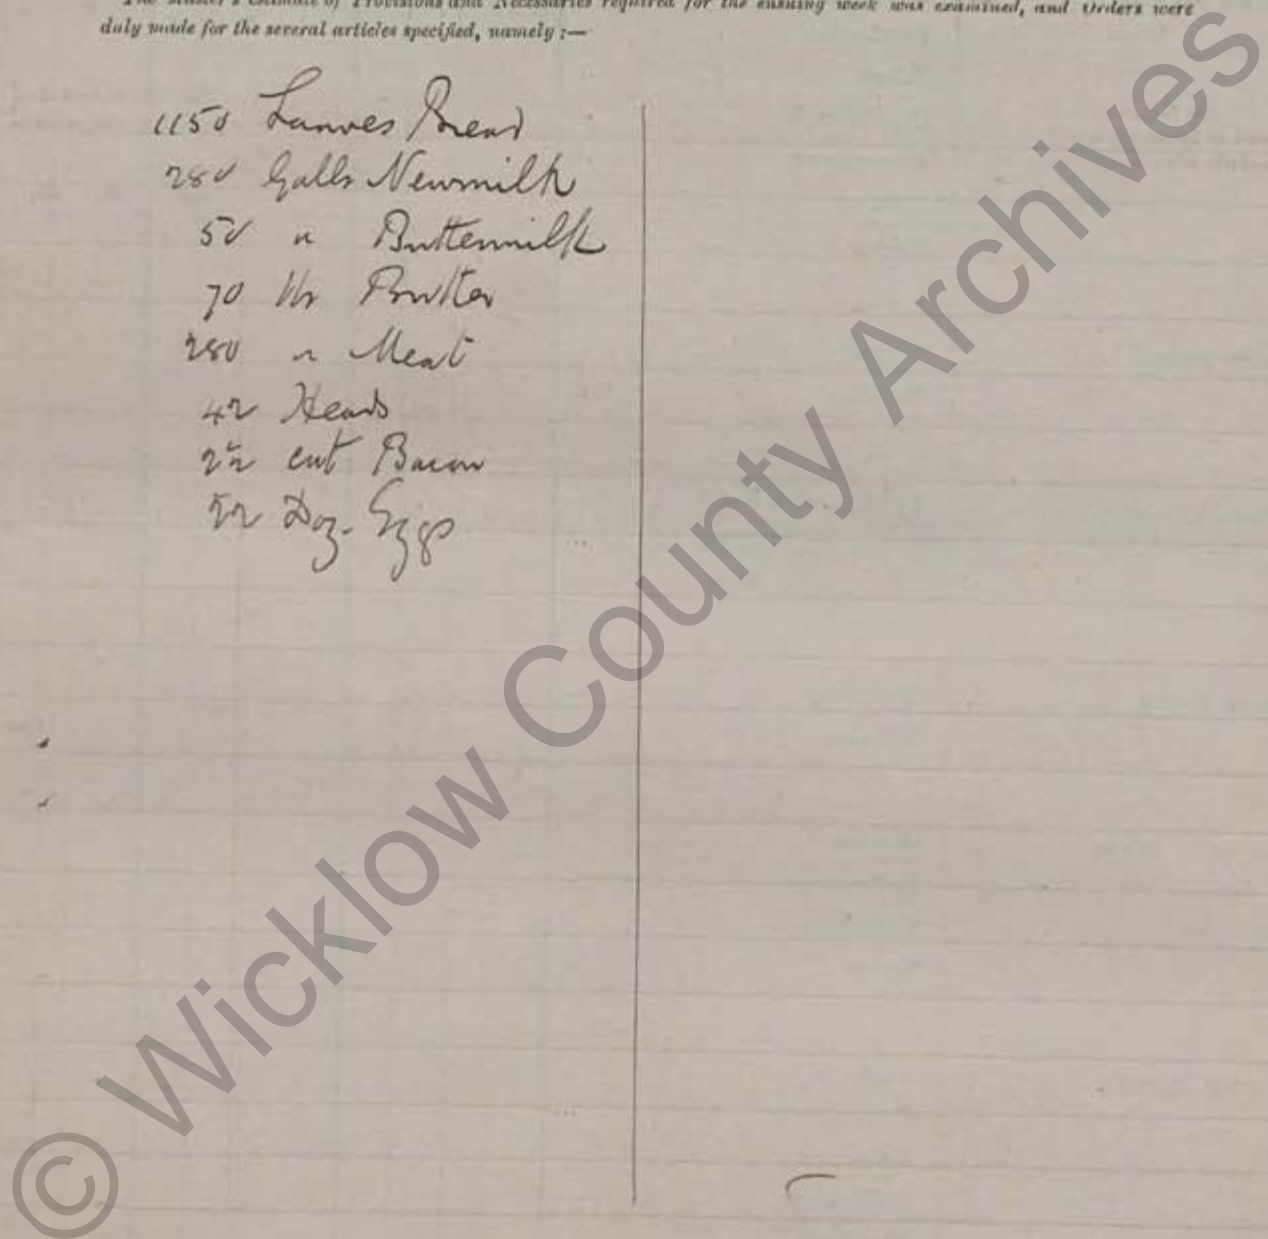 The Master's Estimate of Provisions and Necessaries required for the ensuing week was examined, and Orders were
duly made for the several articles specified, namely :—
1150 Loaves Bread
280 Galls Newmilk
50 " Buttermilk
70 lbs Butter
280 " Meat
42 Heads
2½ cwt Bacon
52 Doz. Eggs
© Wicklow County Archives